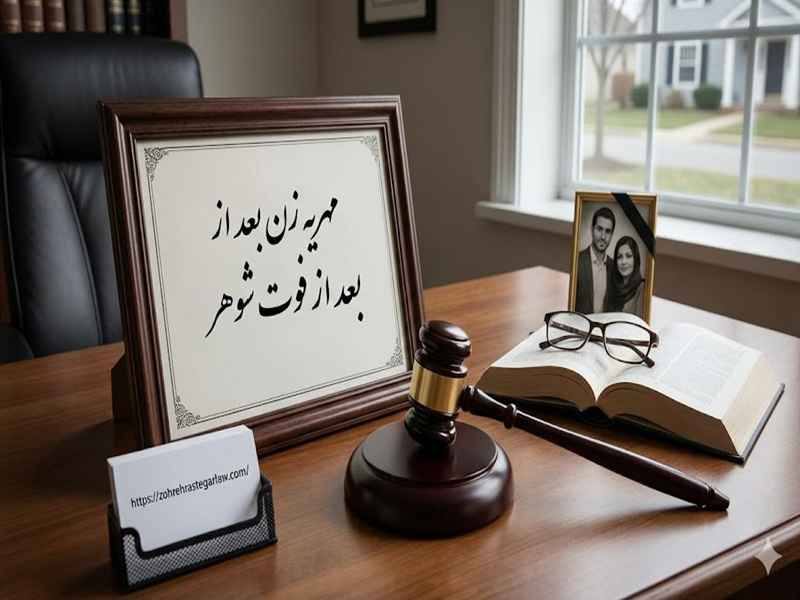 مهریه زن بعد از
بعد از فوت شوهر
https://zohrehrastegarlaw.com/